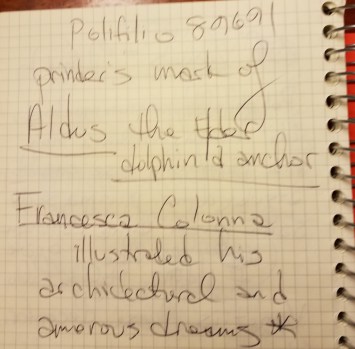 Polifilio 89691
printer's mark of
Aldus the Elder
dolphin'd anchor
Francesca Colonna
illustrated his
architectural and
amorous dreams *